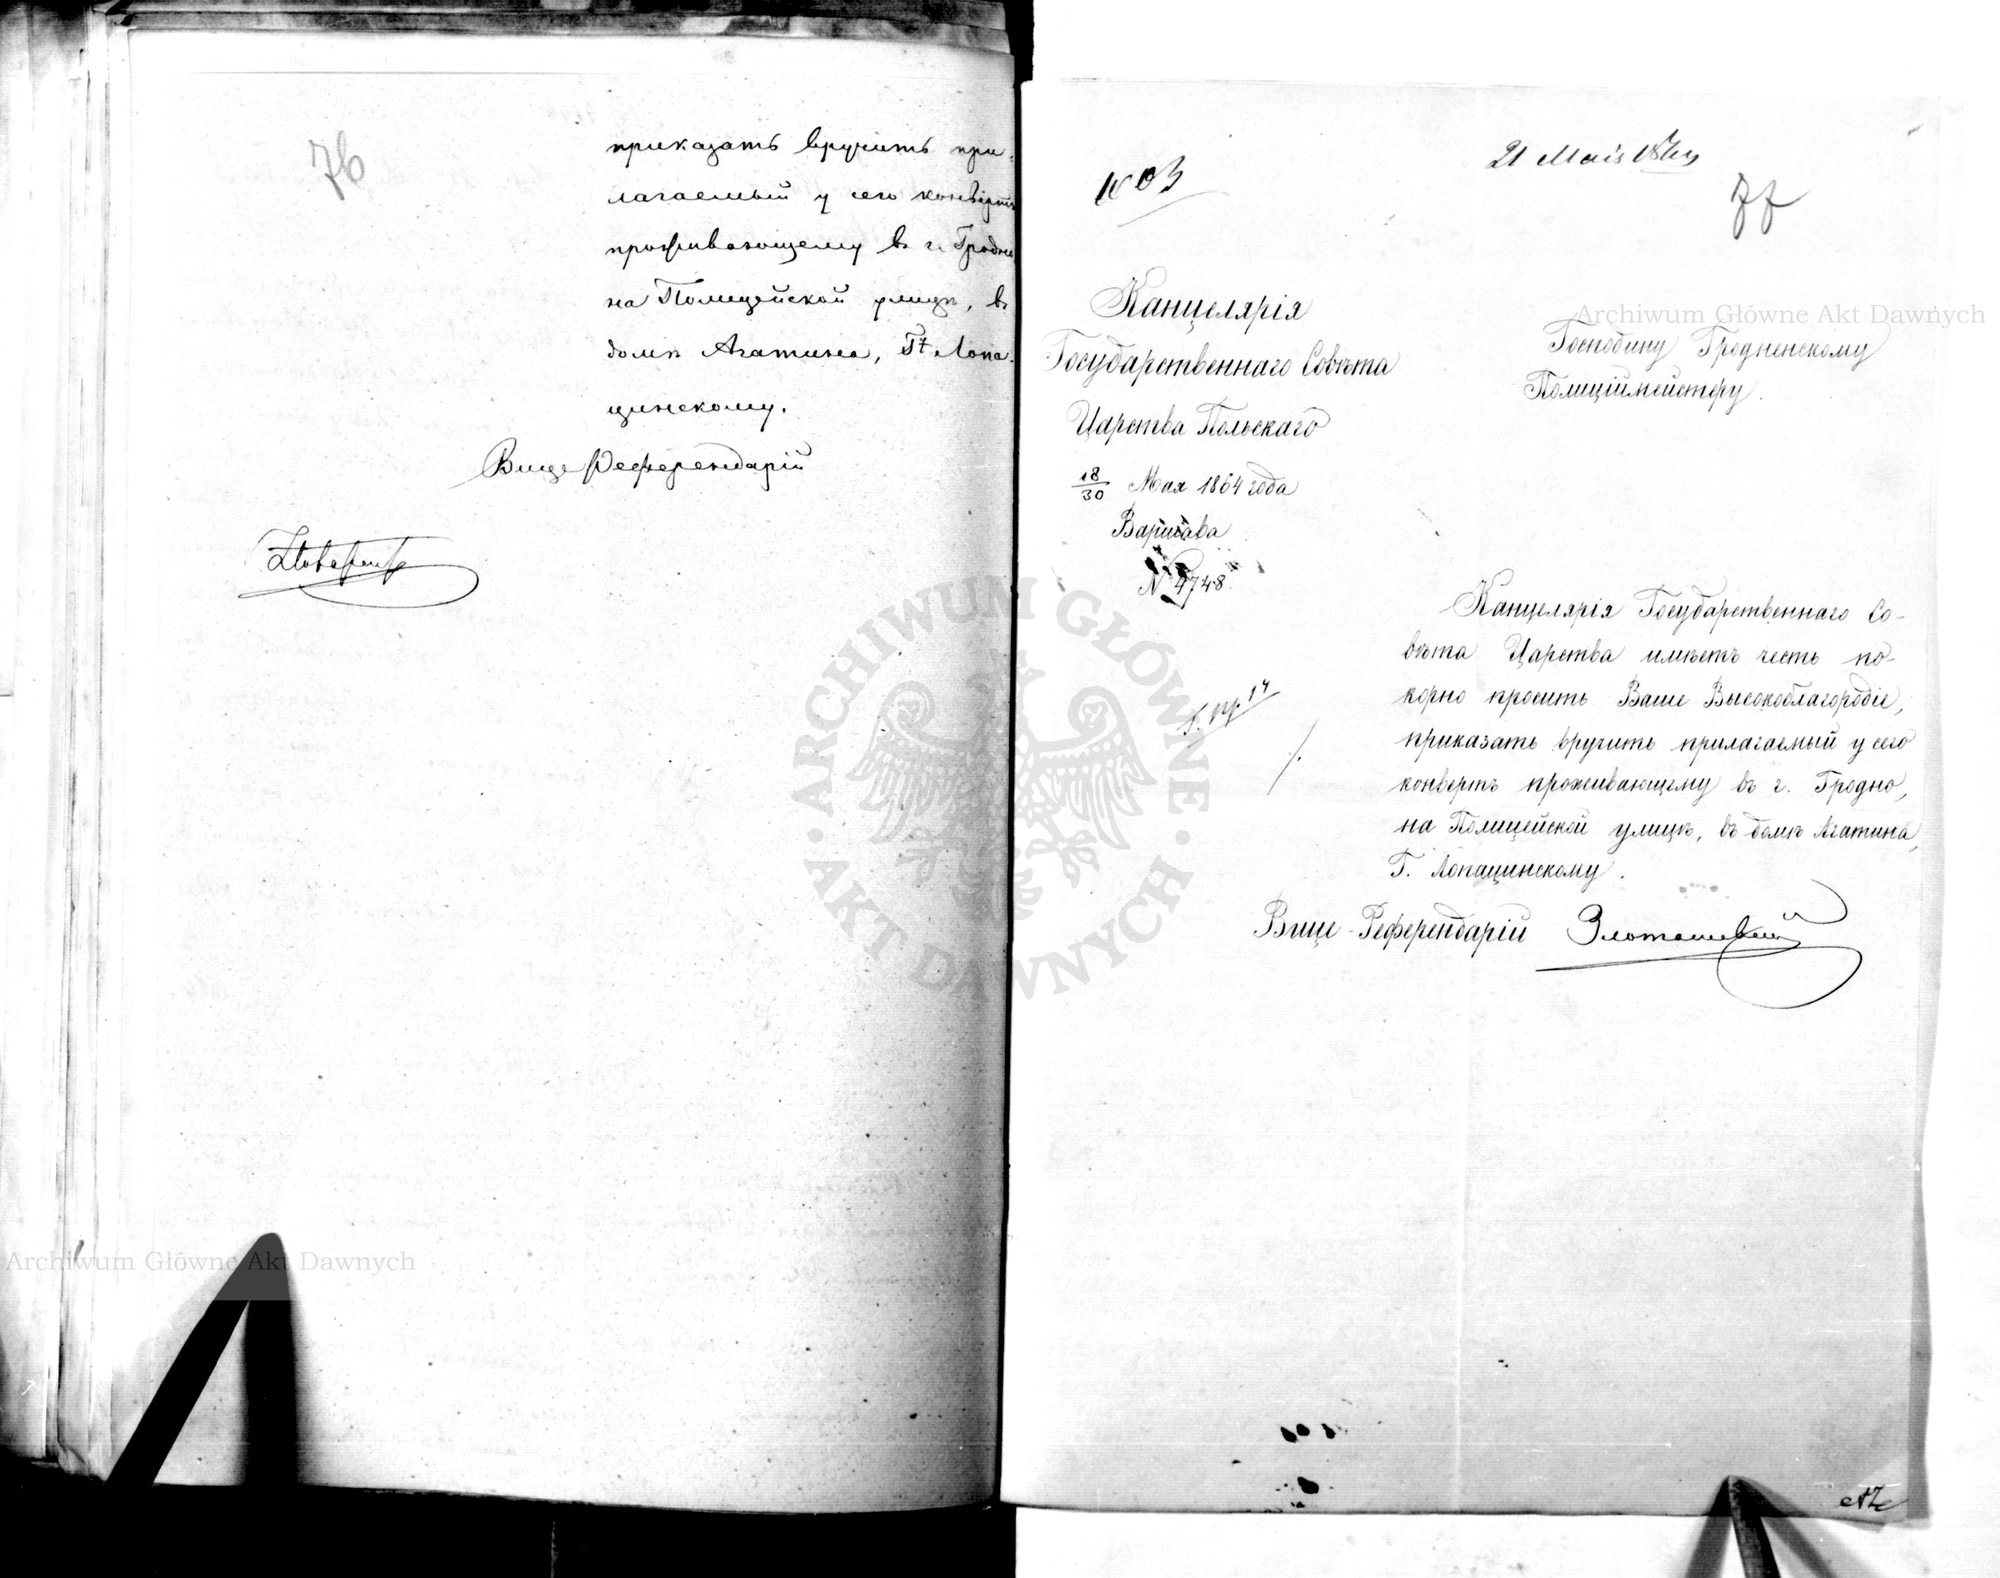 76
приказать вручить при-
лагаемый у сего конвертъ
проживающему въ г. Гродно,
на Полицейской улицѣ, въ
домѣ Агатина, Гну Лопа-
цинскому.
Вице Референдарій
1603
21
77
Канцелярія
Государственнаго Совѣта
Царства Польскаго
18/30 Мая 1864 года
Варшава
N 4748.
Господину Гродненскому
Полиціймейстеру.
Канцелярія Государственнаго Со-
вѣта Царства имѣетъ честь по-
корно просить Ваше Высокоблагородіе,
приказать вручить прилагаемый у сего
конвертъ проживающему въ г. Гродно,
на Полицейской улицѣ, въ домѣ Агатина,
Г. Лопацинскому.
Вице-Референдарій
Archiwum Główne Akt Dawnych
Archiwum Główne Akt Dawnych
ARCHIWUM GŁÓWNE · AKT DAWNYCH ·